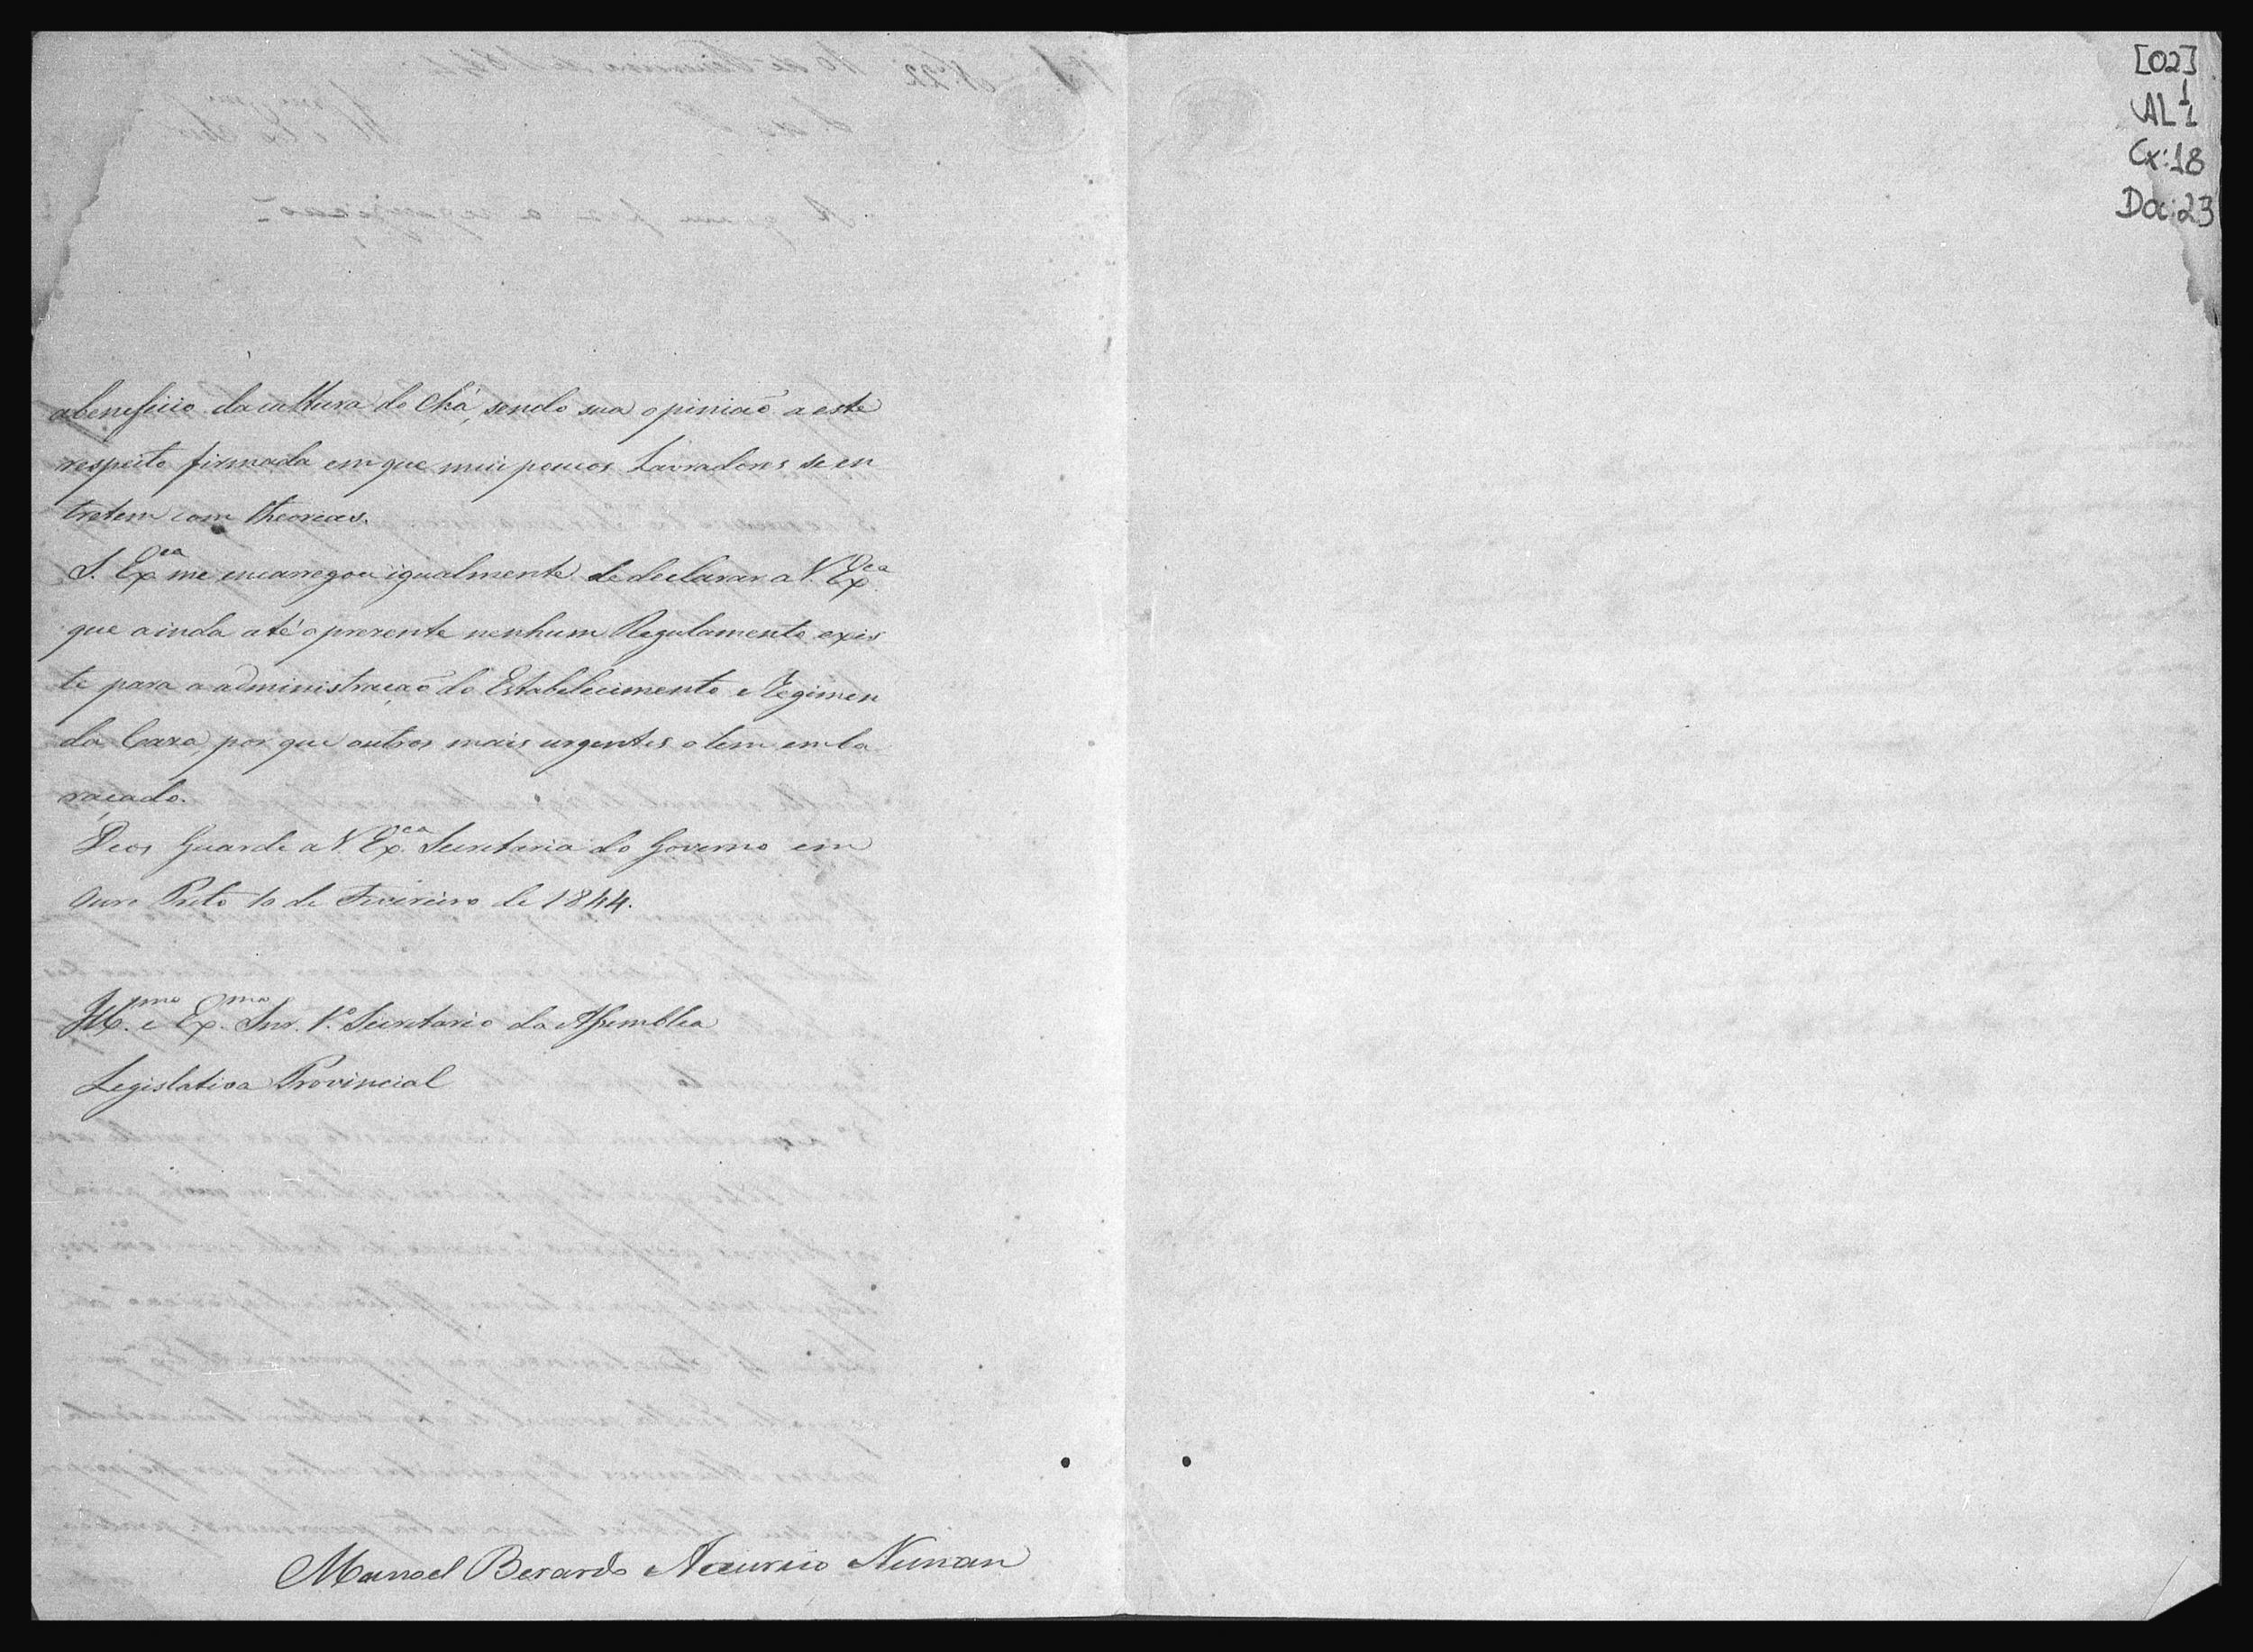 abeneficio da cultura do Chá, sendo sua opiniaõ a este
respeito firmada em que mui poucos Lavradores se en
tretem com theorias.
S. Ex.ca me encarregou igualmente de declarar a V. Ex.ca
que ainda até o presente nenhum Regulamento exis
te para a administraçaõ do Estabelecimento e Regimen
da Caza, por que outros mais urgentes o tem emba
raçado.
Deos Guarde a V. Ex.ca Secretaria do Governo em
Ouro Preto 10 de Fevereiro de 1844.
Ill.mo e Ex.mo Snr. 1.º Secretario da Assemblea
Legislativa Provincial
Manoel Berardo Accursio Nunan
[02]
AL 1
1
Cx: 18
Doc: 23